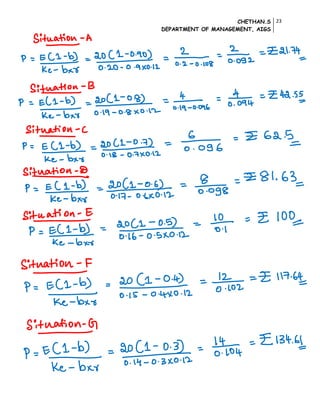 CHETHAN.S 23
DEPARTMENT OF MANAGEMENT, AIGS
Situation-A
P = E(1-b) / Ke-bxr = 20(1-0.90) / 0.20-0.9x0.12 = 2 / 0.2-0.108 = 2 / 0.092 = ₹21.74
Situation-B
P = E(1-b) / Ke-bxr = 20(1-0.8) / 0.19-0.8x0.12 = 4 / 0.19-0.096 = 4 / 0.094 = ₹42.55
Situation-C
P = E(1-b) / Ke-bxr = 20(1-0.7) / 0.18-0.7x0.12 = 6 / 0.096 = ₹62.5
Situation-D
P = E(1-b) / Ke-bxr = 20(1-0.6) / 0.17-0.6x0.12 = 8 / 0.098 = ₹81.63
Situation-E
P = E(1-b) / Ke-bxr = 20(1-0.5) / 0.16-0.5x0.12 = 10 / 0.1 = ₹100
Situation-F
P = E(1-b) / Ke-bxr = 20(1-0.4) / 0.15-0.4x0.12 = 12 / 0.102 = ₹117.64
Situation-G
P = E(1-b) / Ke-bxr = 20(1-0.3) / 0.14-0.3x0.12 = 14 / 0.104 = ₹134.61